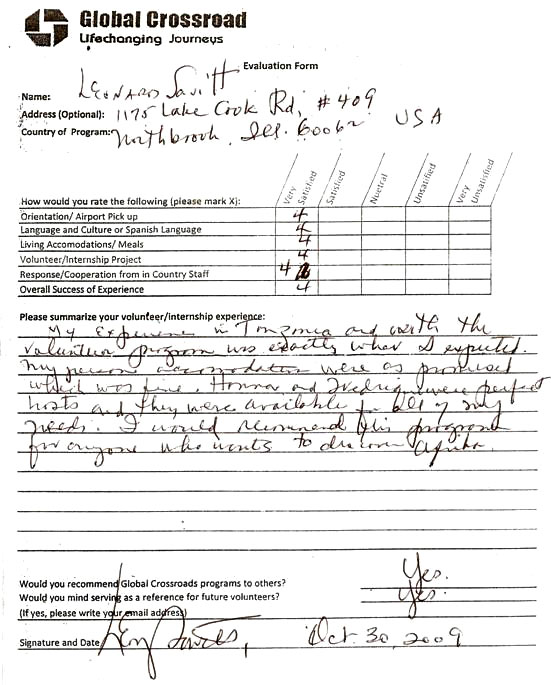 Global Crossroad
Lifechanging Journeys
Evaluation Form
Name: Leonard Savitt
Address (Optional): 1175 Lake Cook Rd, # 409
Country of Program: Northbrook, Ill. 60062 USA
How would you rate the following (please mark X): Very Satisfied Satisfied Nuetral Unsatified Very Unsatisfied
Orientation/ Airport Pick up 4
Language and Culture or Spanish Language 4
Living Accomodations/ Meals 4
Volunteer/Internship Project 4
Response/Cooperation from in Country Staff 4
Overall Success of Experience 4
Please summarize your volunteer/internship experience:
My Experience in Tanzania and with the
volunteer program was exactly what I expected.
My person accomodations were as promised
which was fine. and were perfect
hosts and they were available for all of my
needs. I would recommend this program
for anyone who wants to discover Afrika.
Would you recommend Global Crossroads programs to others? Yes.
Would you mind serving as a reference for future volunteers? Yes.
(If yes, please write your email address)
Signature and Date Oct. 30, 2009